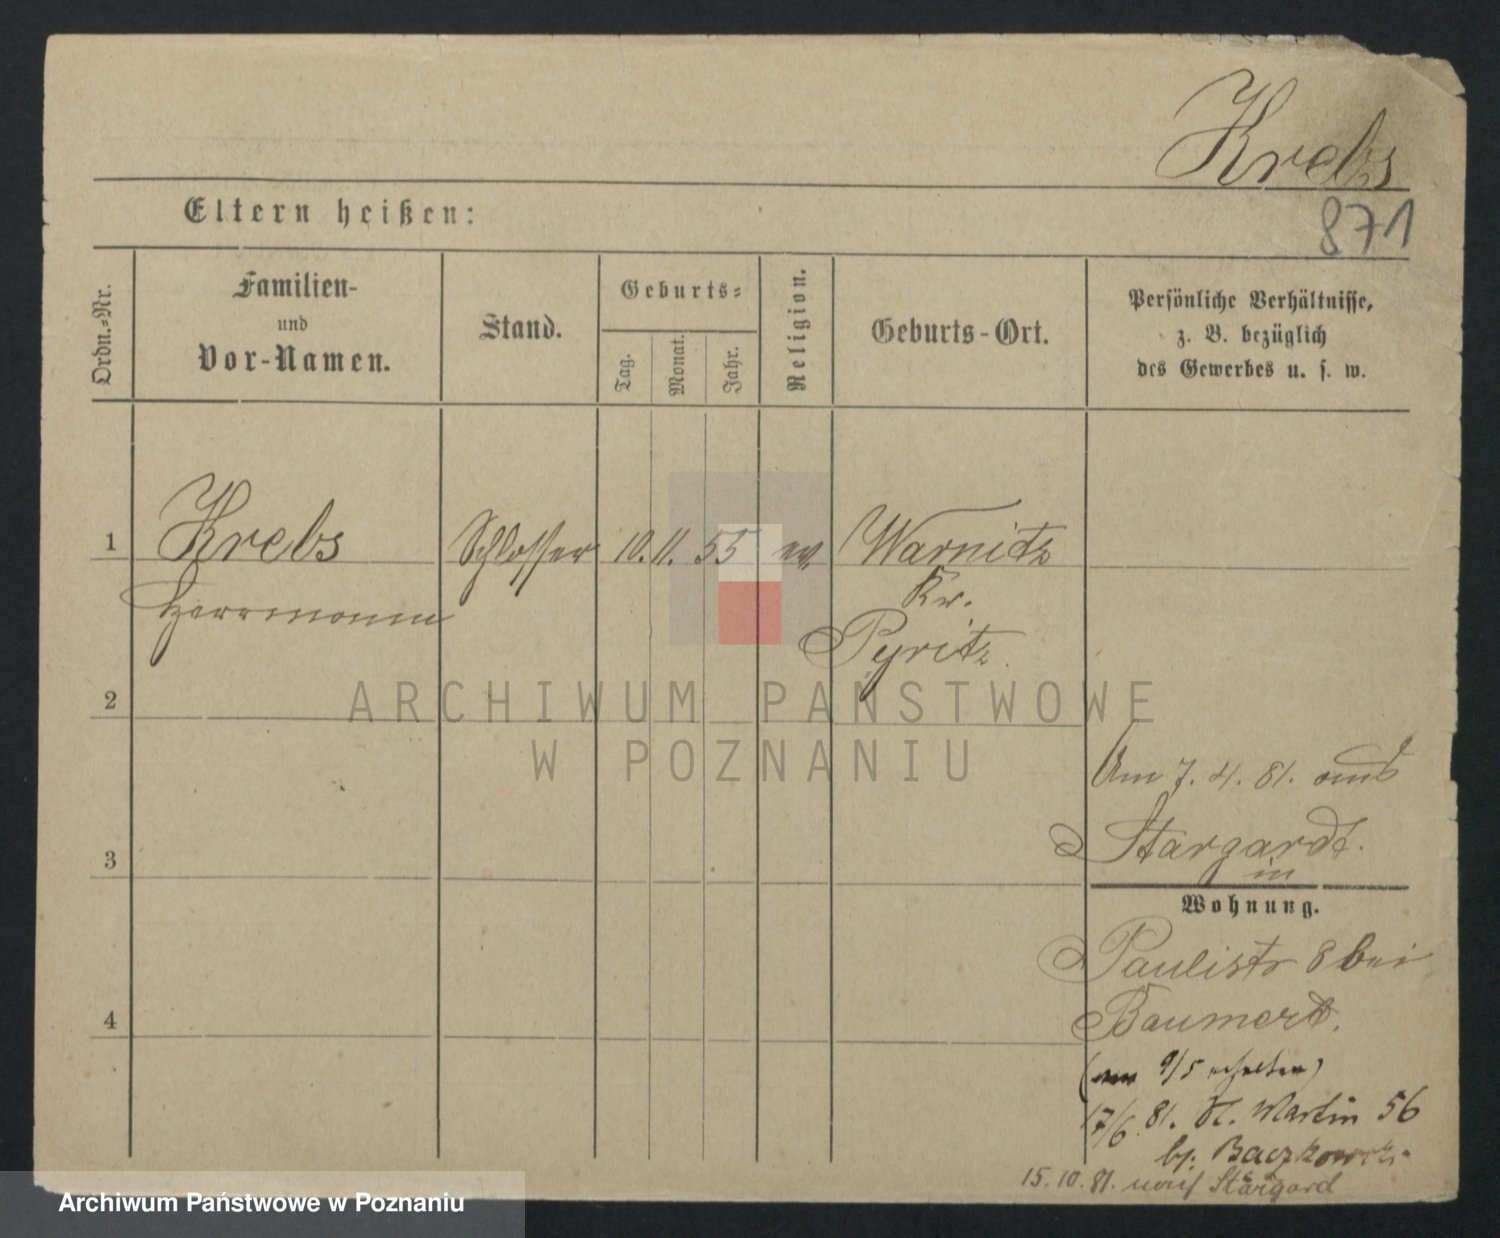 Krebs
871
Eltern heißen:
Ordn.-Nr.
Familien-
und
Vor-Namen.
Stand.
Geburts-
Tag.
Monat.
Jahr.
Religion.
Geburts-Ort.
Persönliche Verhältnisse,
z. B. bezüglich
des Gewerbes u. s. w.
1 Krebs Schlosser 10. 11. 55 ev. Warnitz
Herrmann Kr.
Pyritz
2
ARCHIWUM PAŃSTWOWE
W POZNANIU
Am 7. 4. 81. aus
Stargardt.
in
3
Wohnung.
Paulistr 8 bei
Baumert.
4
9/5
17/6. 81. St. Martin 56
b/: Baczkowski
15. 10. 81. nach Stargard
Archiwum Państwowe w Poznaniu